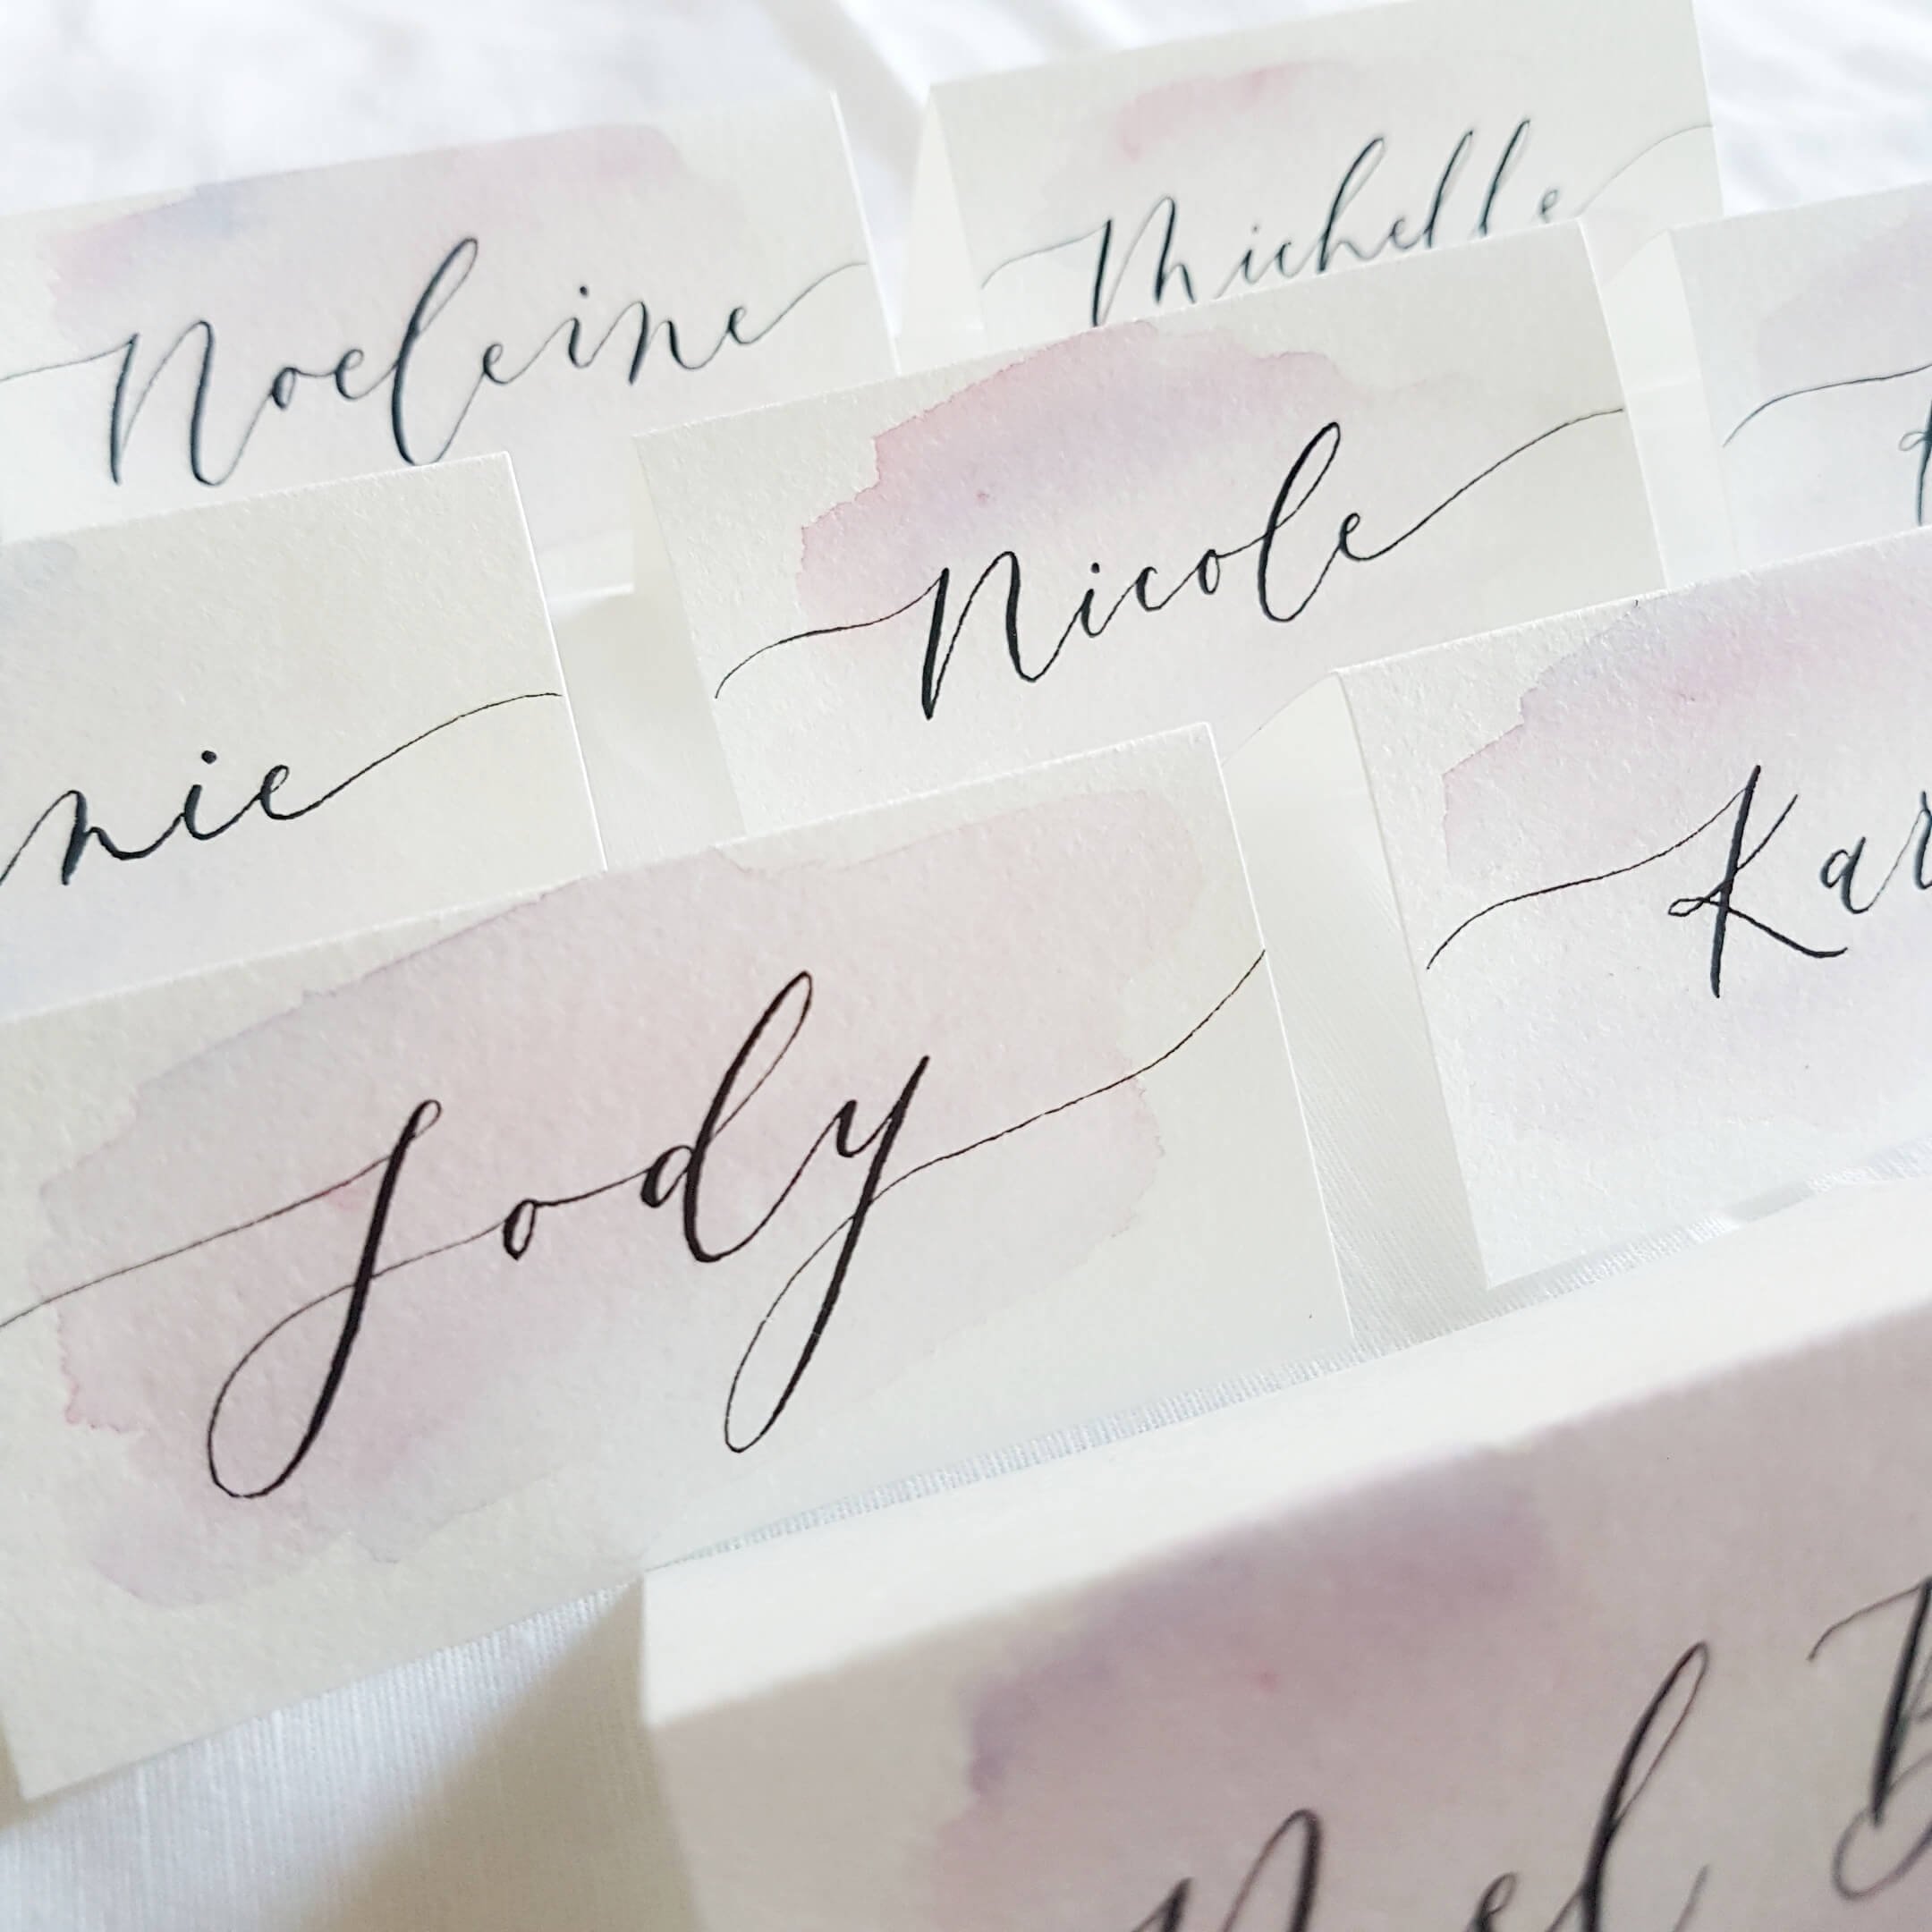 Michelle
Noeleine
Nicole
nie
Kar
Jody
Mel B